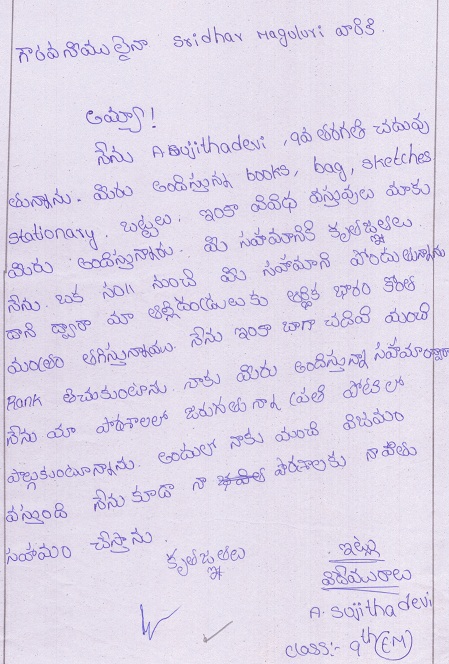 గౌరవనీయులైనా Sridhar Maguluri వారికి
అయ్యా!
నేను A.Sujithadevi, 9వ తరగతి చదువు
తున్నాను. మీరు అందిస్తున్న books, bag, sketches
stationary. బట్టలు. ఇంకా వివిధ వస్తువులు మాకు
మీరు అందిస్తున్నారు. మీ సహాయానికి కృతజ్ఞతలు.
నేను ఒక సం॥ నుంచి మీ సహాయాని పొందుతున్నాను
దాని ద్వారా మా తల్లిదండ్రులకు ఆర్థిక భారం కొంత
మంత్రం తగిస్తున్నాయి. నేను ఇంకా బాగా చదివి మంచి
Rank తెచుకుంటాను. నాకు మీరు అందిస్తున్నా సహయం ద్వారా
నేను మా పాఠశాలలో జరుగుతున్నా ప్రతి పోటిలో
పాల్గుకుంటున్నాను. అందులో నాకు మంచి విజయం
వస్తుంది నేను కూడా నా పాఠశాలకు నావంతు
సహయం చేస్తాను.
కృతజ్ఞతలు
ఇట్లు
విధేయురాలు
A. Sujithadevi
class:- 9th (EM)